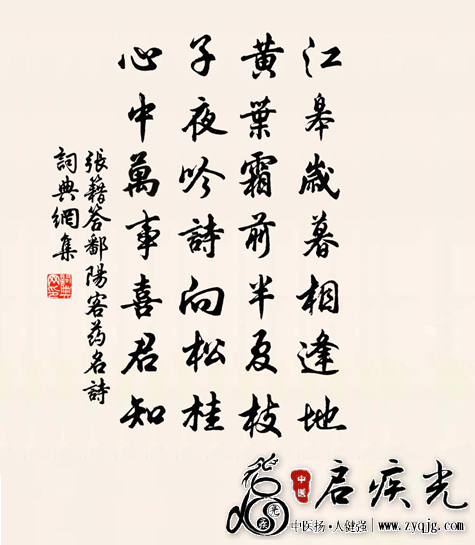 江皋歲暮相逢地
黃葉霜前半夏枝
子夜吟詩向松桂
心中萬事喜君知
張籍答鄱陽客药名詩
詞典網集
中医
启疾光
中医扬·人健强 | www.zyqjg.com